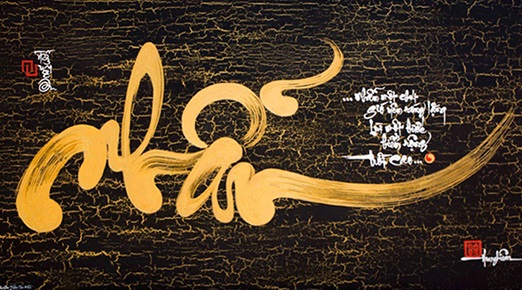 nhẫn
... nhẫn một chút
gió yên sóng lặng
lùi một bước
biển rộng
trời cao...